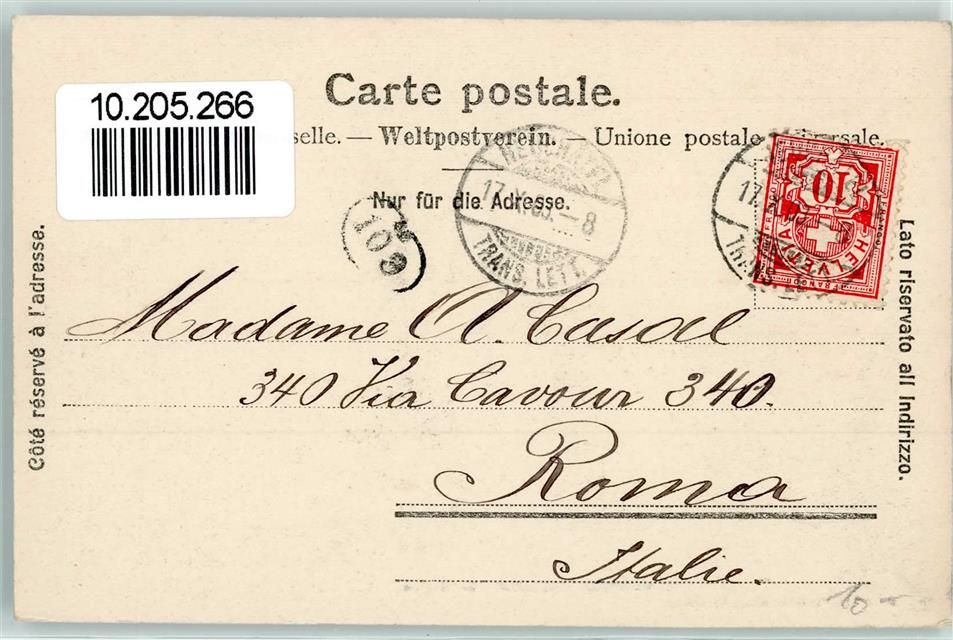 Carte postale.
10.205.266
selle. — Weltpostverein. — Unione postale
Nur für die Adresse.
Côté réservé à l'adresse.
Lato riservato all Indirizzo.
17. X. 8
TRANS. LETT.
103
10
FRANCO
HELVETIA
FRANCO
Madame A. Casal
340 Via Cavour 340.
Roma
Italie.
10 –